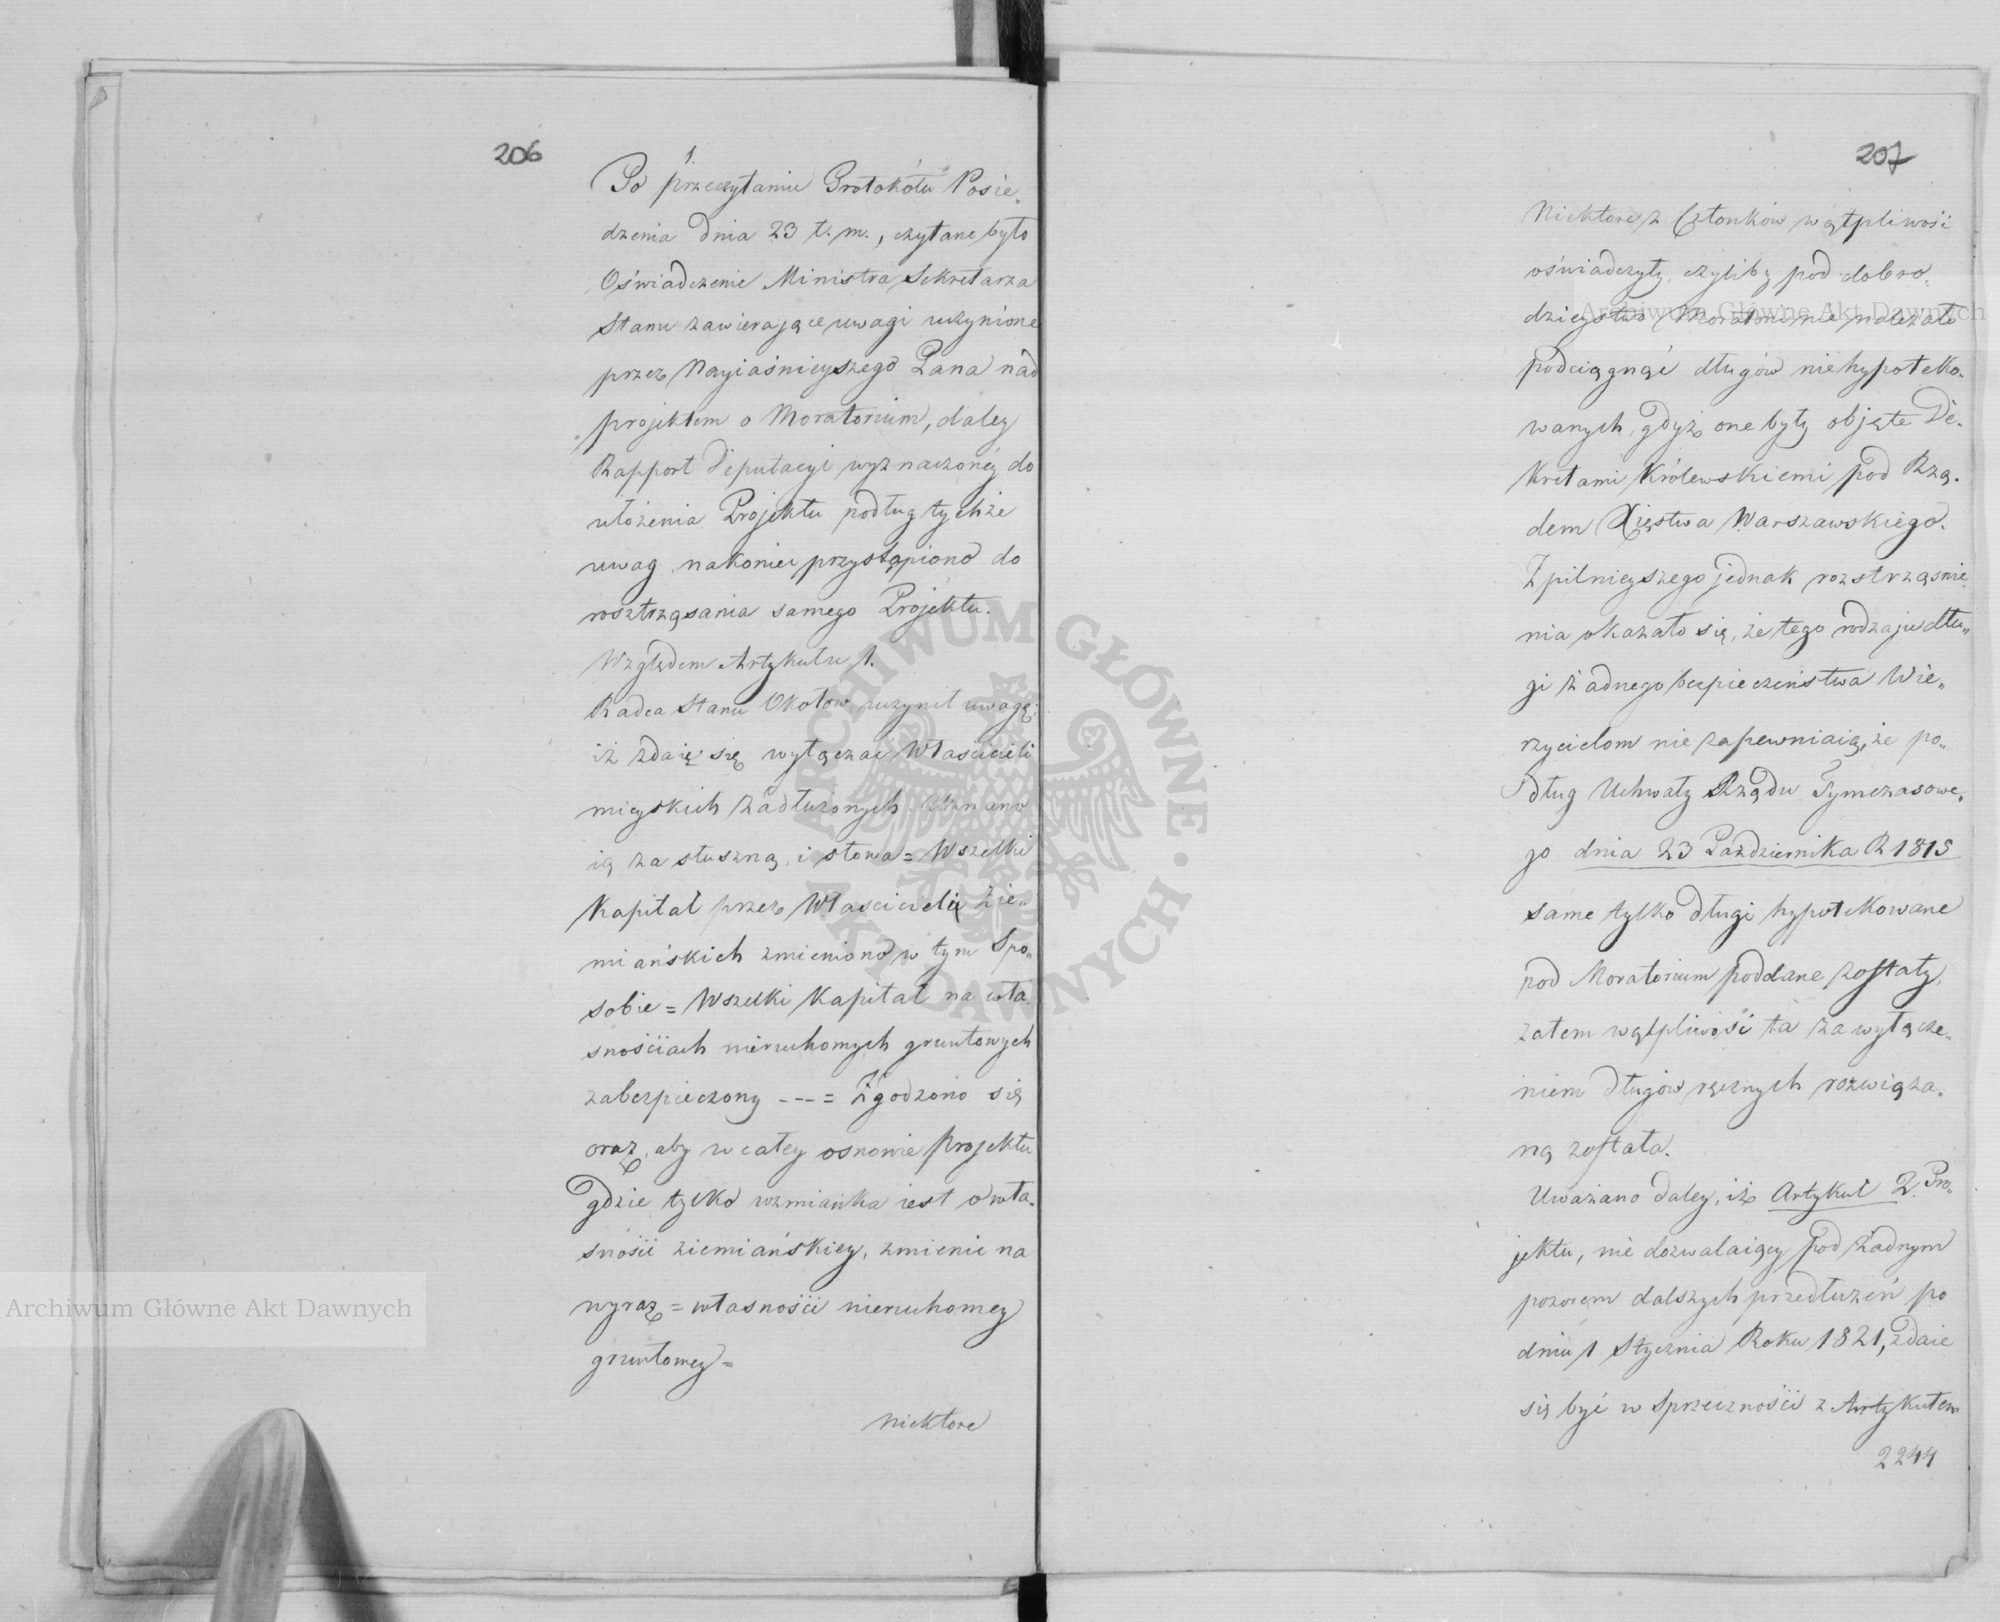 206
1.
Po przeczytaniu Protokółu Posie„
dzenia dnia 23 t. m., czytane było
Oświadczenie Ministra Sekretarza
Stanu zawierające uwagi uczynione
przez Nayiaśnieyszego Pana nad
projektem o Moratorium, daley
Rapport Deputacyi wyznaczonéy do
ułożenia Projektu podług tychże
uwag, nakoniec przystąpiono do
rosztrząsania samego Projektu.
Względem Artykułu 1.
Radca Stanu Okołow uczynił uwagę,
iż zdaię się wyłączać Właścicieli
mieyskich zadłużonych. Uznano
ią za słuszną, i słowa = Wszelki
Kapitał przez Właścicieli Zie„
miańskich zmieniono w tym Spo„
sobie = Wszelki Kapitał na wła„
snościach nieruchomych gruntowych
zabezpieczony --- = Zgodzono się
oraz, aby w całey osnowie Projektu
gdzie tylko wzmianka iest o wła„
sności ziemiańskiey, zmienić na
wyraz = własności nieruchomey
gruntowey =
niektore
207
Niektore z Członków wątpliwość
oświadczyły, czyliby pod dobro„
dzieystwo Moratorii nie należało
podciągnąć długów niehypoteko„
wanych, gdyż one były objęte De„
kretami Królewskiemi pod Rzą„
dem Xięstwa Warszawskiego.
Z pilnieyszego jednak rozstrząsnie„
nia okazało się, że tego rodzaju dłu„
gi żadnego bezpieczeństwa Wie„
rzycielom nie zapewniaią, że po„
dług Uchwały Rządu Tymczasowe„
go dnia 23 Października R 1815
same tylko długi hypotekowane
pod Moratorium poddane zostały,
zatem wątpliwość ta za wyłącze„
niem długów ręcznych rozwiąza„
ną została.
Uważano daley, iż Artykuł 2. Pro„
jektu, nie dozwalaiący pod żadnym
pozorem dalszych przedłużeń po
dniu 1 Stycznia Roku 1821, zdaie
się być w Sprzeczności z Artykułem
2244
Archiwum Główne Akt Dawnych
Archiwum Główne Akt Dawnych
ARCHIWUM GŁÓWNE · AKT DAWNYCH ·